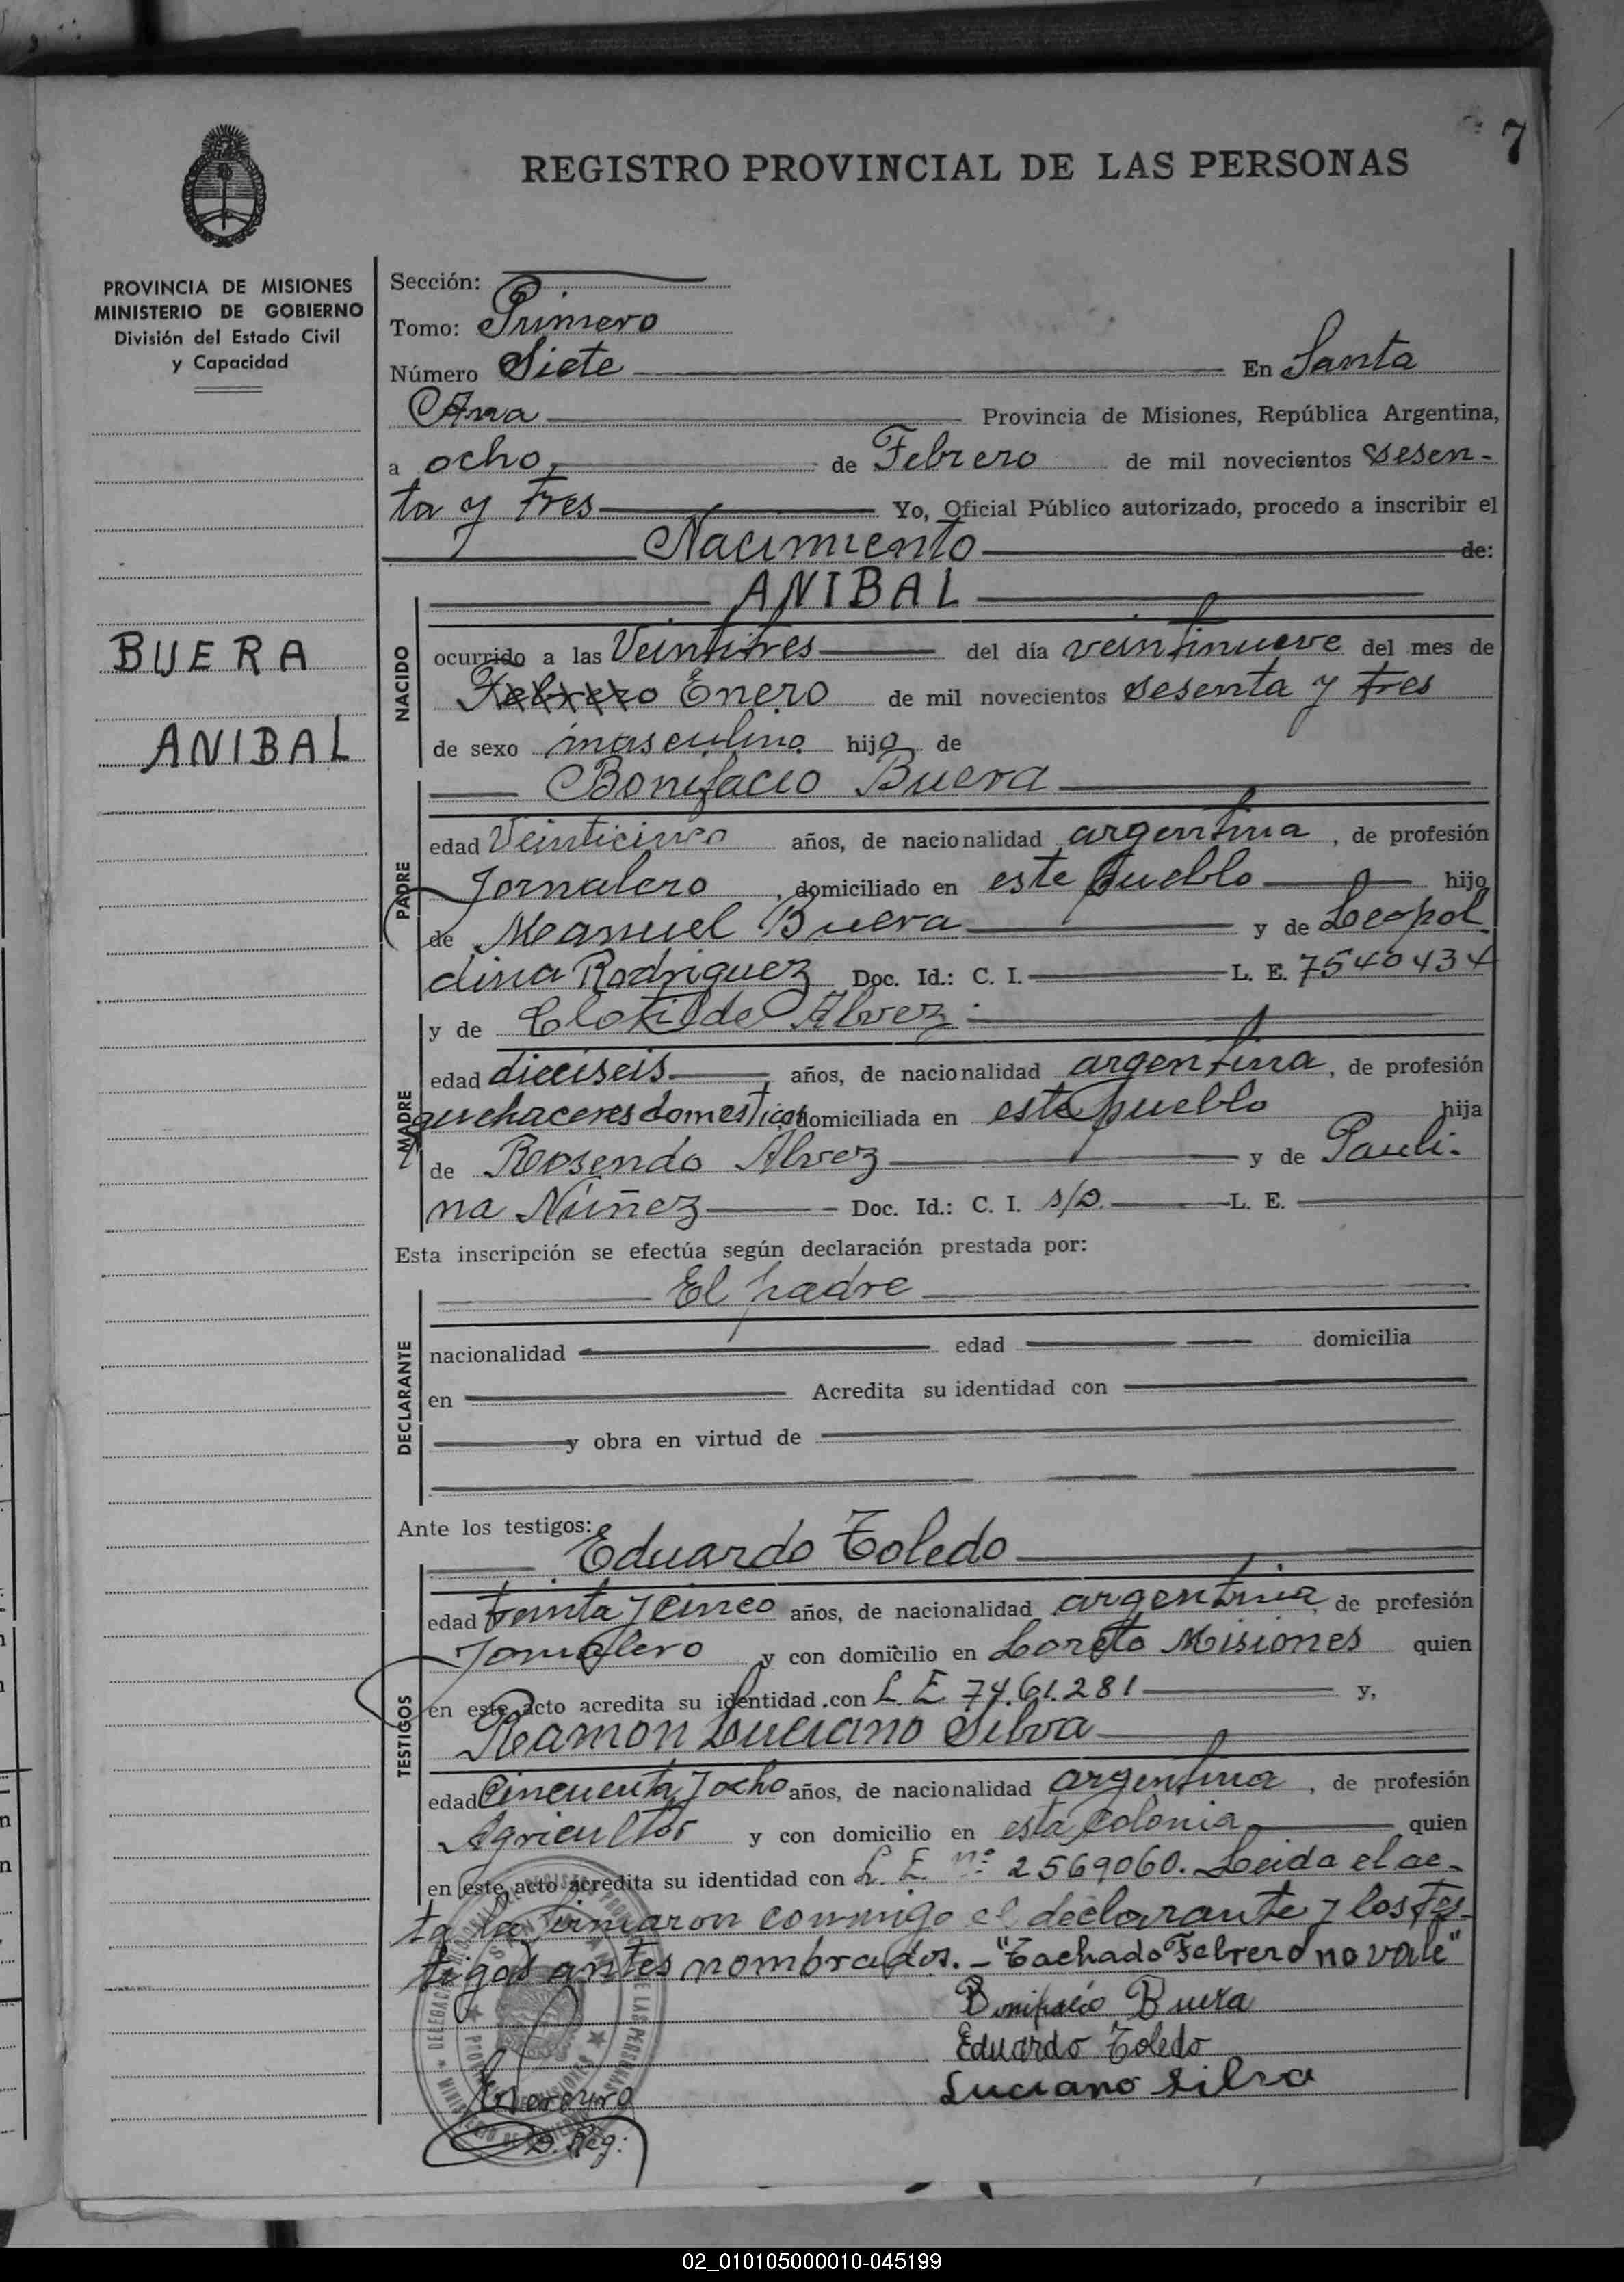 7
REGISTRO PROVINCIAL DE LAS PERSONAS
PROVINCIA DE MISIONES
MINISTERIO DE GOBIERNO
División del Estado Civil
y Capacidad
BUERA
ANIBAL
Sección:
Tomo: Primero
Número Siete En Santa
Ana Provincia de Misiones, República Argentina,
a ocho, de Febrero de mil novecientos sesen-
ta y tres Yo, Oficial Público autorizado, procedo a inscribir el
Nacimiento de:
ANIBAL
NACIDO
ocurrido a las Veintitres del día veintinueve del mes de
Febrero Enero de mil novecientos sesenta y tres
de sexo masculino hijo de
Bonifacio Buera
PADRE
edad Veinticinco años, de nacionalidad argentina, de profesión
Jornalero, domiciliado en este pueblo hijo
de Manuel Buera y de Leopol
dina Rodriguez Doc. Id.: C. I. L. E. 7540434
y de Clotilde Alvez
MADRE
edad dieciseis, años, de nacionalidad argentina, de profesión
quehaceres domesticos domiciliada en este pueblo hija
de Rosendo Alvez y de Pauli-
na Núñez Doc. Id.: C. I. s/D. L. E.
Esta inscripción se efectúa según declaración prestada por:
El padre
DECLARANTE
nacionalidad edad domicilia
en Acredita su identidad con
y obra en virtud de
Ante los testigos:
Eduardo Toledo
TESTIGOS
edad treinta y cinco años, de nacionalidad argentina de profesión
Jornalero y con domicilio en Loreto Misiones quien
en este acto acredita su identidad con L. E. 74.61.281 y,
Ramon Luciano Silva
edad Cincuenta y ocho años, de nacionalidad argentina, de profesión
Agricultor y con domicilio en esta Colonia quien
en este acto acredita su identidad con L. E. nº 2569060. Leida el ac-
ta la firmaron conmigo el declarante y los tes-
tigos antes nombrados.- "Tachado Febrero no vale"
Bonifacio Buera
Eduardo Toledo
Luciano Silva
D. Reg:
02_010105000010-045199